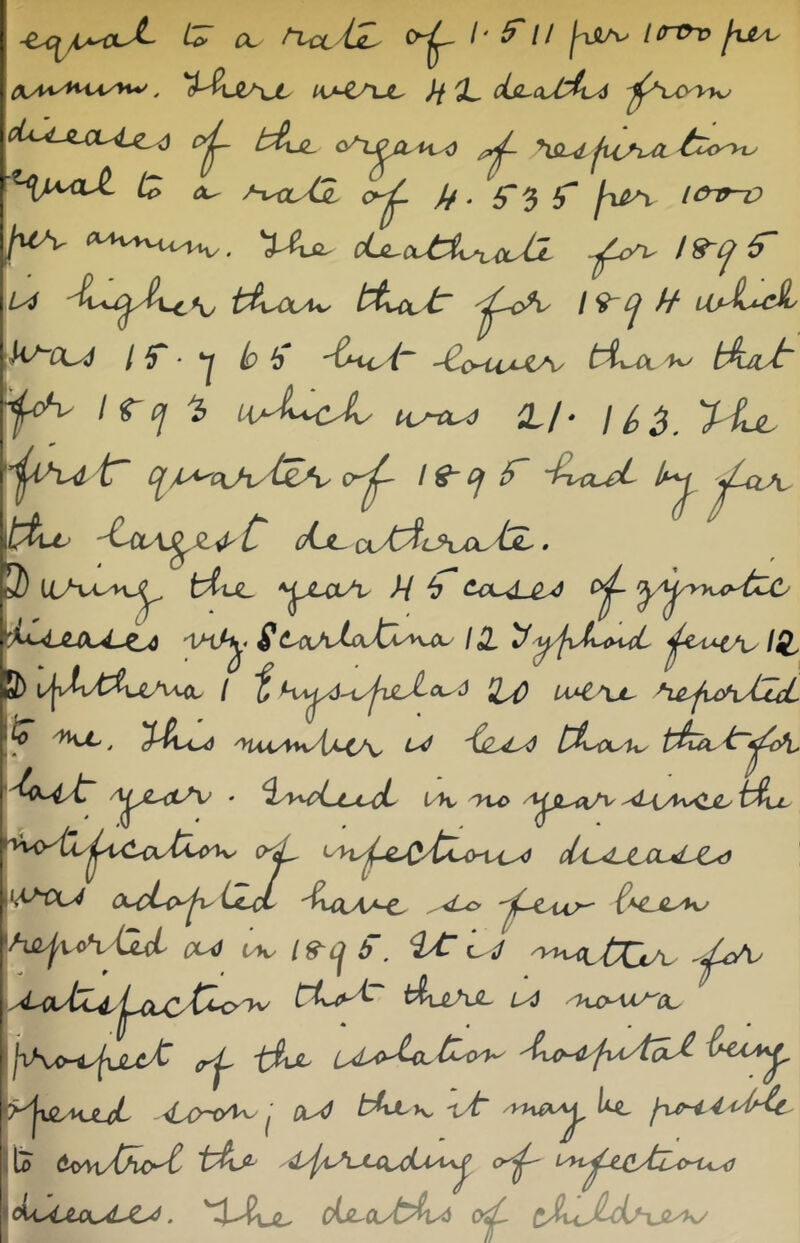 equal to a rate of 1.511 per 1000 per
annum. There were 42 deaths from
diseases of the organs of respiration
equal to a rate of 4.535 per 1000
per annum. The deathrate for 1895
is higher than that for 1894 which
was 15.765 but lower than that
for 1893 which was 21.163. The
first quarter of 1895 had by far
the largest deathrate.
During the year 45 cases of zymotic
diseases viz. Scarlatina 12 Typhoid fever 12
Diphtheria 1 Erysipelas 20 were reported
to me. This number is less than that for
last year. Indeed in no year since the
notification of infectious diseases
was adopted have so few been
reported as in 1895. It is matter for
satisfaction that there is now a
prospect of the isolation hospital being
opened soon; as then it may be possible
to control the spreading of infectious
diseases. The deaths of children